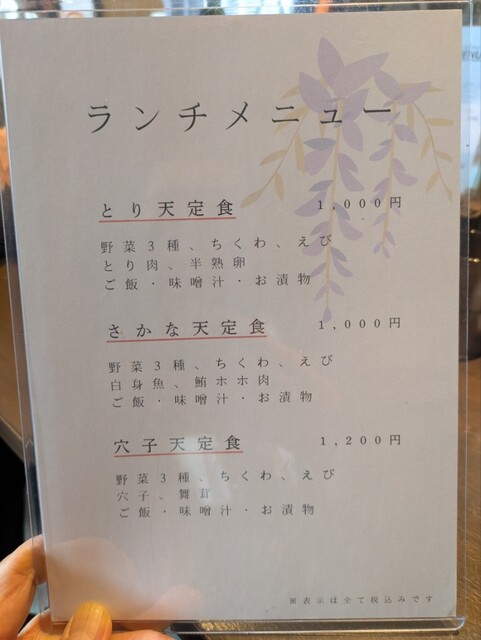 ランチメニュー
とり天定食 1,000円
野菜3種、ちくわ、えび
とり肉、半熟卵
ご飯・味噌汁・お漬物
さかな天定食 1,000円
野菜3種、ちくわ、えび
白身魚、鮪ホホ肉
ご飯・味噌汁・お漬物
穴子天定食 1,200円
野菜3種、ちくわ、えび
穴子、舞茸
ご飯・味噌汁・お漬物
※表示は全て税込みです